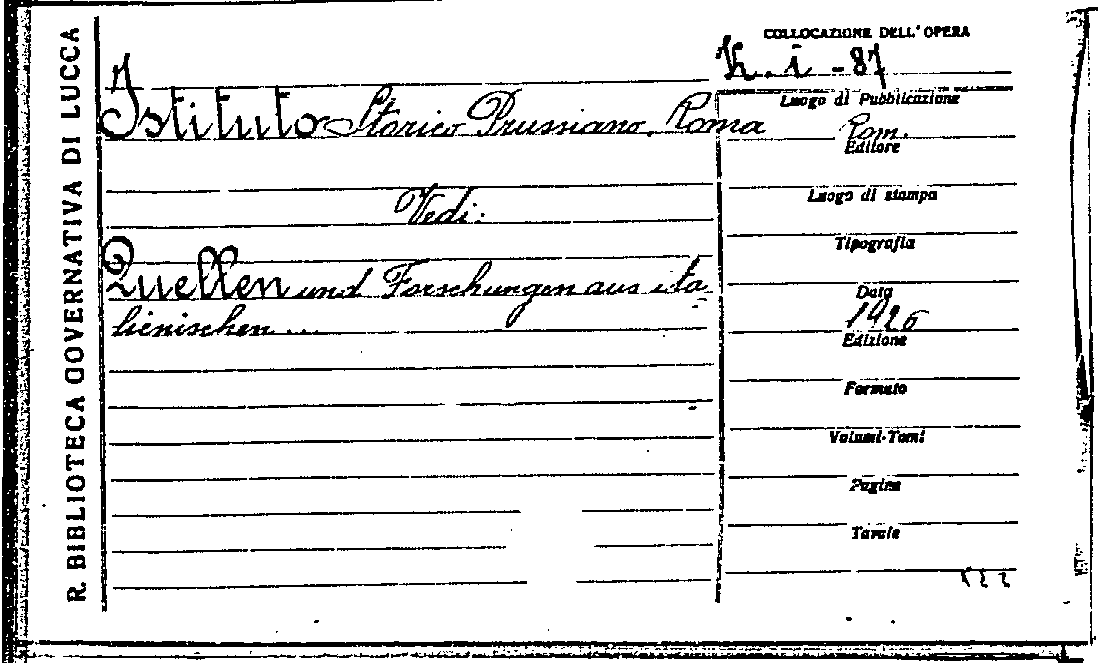 R. BIBLIOTECA GOVERNATIVA DI LUCCA
COLLOCAZIONE DELL'OPERA
K. i - 87
Istituto Storico Prussiano. Roma
Vedi:
Quellen und Forschungen aus ita
lienischen ...
Luogo di Pubblicazione
Rom.
Editore
Luogo di stampa
Tipografia
Data
1926
Edizione
Formato
Volumi-Tomi
Pagine
Tavole